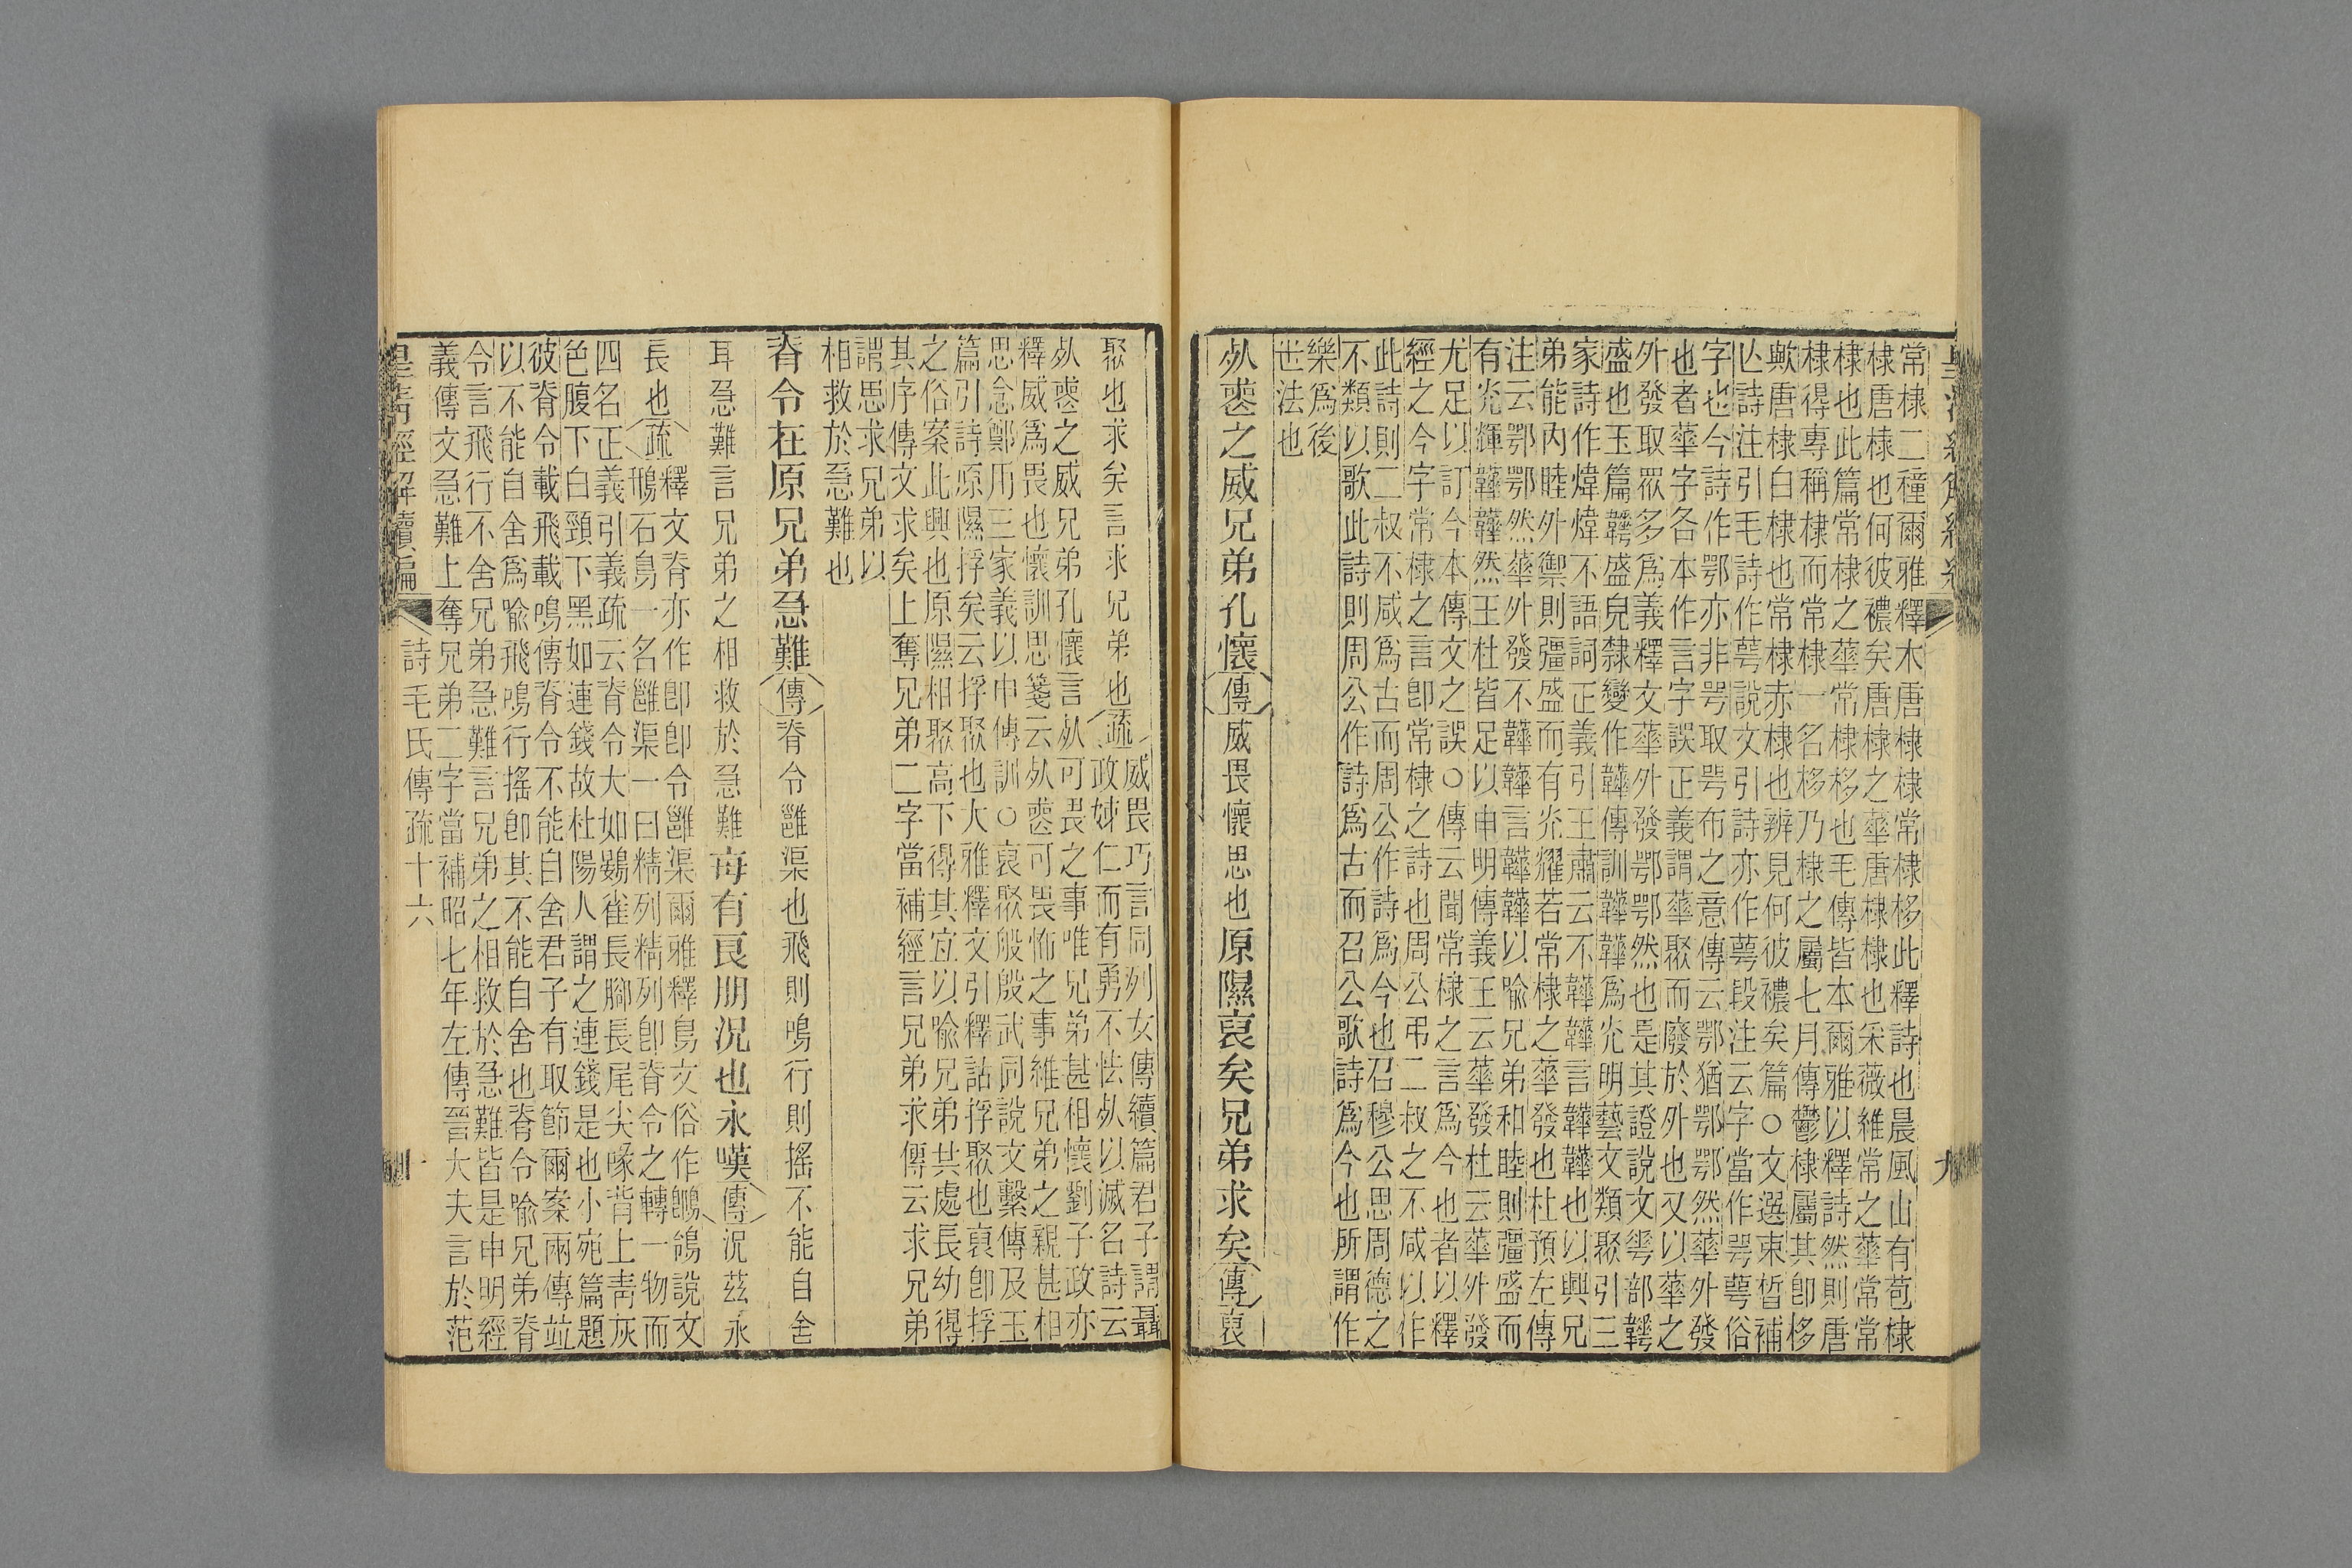 常棣二穜爾雅釋木唐棣棣常棣栘此釋詩也晨風山有苞棣
棣唐棣也何彼襛矣唐棣之華唐棣棣也采薇維常之華常常
棣也此篇常棣之華常棣栘也毛傳皆本爾雅以釋詩然則唐
棣得專稱棣而常棣一名栘乃棣之屬七月傳鬱棣屬其卽栘
歟唐棣白棣也常棣赤棣也辨見何彼襛矣篇○文選束晳補
亾詩注引毛詩作萼說文引詩亦作萼段注云字當作咢萼俗
字也今詩作鄂亦非咢取咢布之意傳云鄂猶鄂鄂然華外發
也者華字各本作言字誤正義謂華聚而廢於外也又以華之
外發取眾多爲義釋文華外發鄂鄂然也是其證說文𠌶部韡
盛也玉篇韡盛皃隸變作韡傳訓韡韡爲光明藝文類聚引三
家詩作煒煒不語詞正義引王肅云不韡韡言韡韡也以興兄
弟能內睦外禦則彊盛而有光耀若常棣之華發也杜預左傳
注云鄂鄂然華外發不韡韡言韡韡以喻兄弟和睦則彊盛而
有光輝韡韡然王杜皆足以申明傳義王云華發杜云華外發
尤足以訂今本傳文之誤○傳云聞常棣之言爲今也者以釋
經之今字常棣之言卽常棣之詩也周公弔二叔之不咸以作
此詩則二叔不咸爲古而周公作詩爲今也召穆公思周德之
不類以歌此詩則周公作詩爲古而召公歌詩爲今也所謂作
樂爲後
世法也
死喪之威兄弟孔懷傳威畏懷思也原隰裒矣兄弟求矣傳裒
聚也求矣言求兄弟也疏威畏巧言同列女傳續篇君子謂聶
政姊仁而有勇不怯死以滅名詩云
死喪之威兄弟孔懷言死可畏之事唯兄弟甚相懷劉子政亦
釋威爲畏也懷訓思箋云死喪可畏怖之事維兄弟之親甚相
思念鄭用三家義以申傳訓○裒聚般殷武同說文繫傳及玉
篇引詩原隰捊矣云捊聚也大雅釋文引釋詁捊聚也裒卽捊
之俗案此興也原隰相聚高下得其宜以喻兄弟共處長幼得
其序傳文求矣上奪兄弟二字當補經言兄弟求傳云求兄弟
謂思求兄弟以
相救於急難也
脊令在原兄弟急難傳脊令雝渠也飛則鳴行則搖不能自舍
耳急難言兄弟之相救於急難每有良朋況也永嘆傳況茲永
長也疏釋文脊亦作卽卽令雝渠爾雅釋鳥文俗作鶺鴒說文
鴡石鳥一名雝渠一曰精列精列卽脊令之轉一物而
四名正義引義疏云脊令大如鷃雀長腳長尾尖喙背上青灰
色腹下白頸下黑如連錢故杜陽人謂之連錢是也小宛篇題
彼脊令載飛載鳴傳脊令不能自舍君子有取節爾案兩傳竝
以不能自舍爲喻飛鳴行搖卽其不能自舍也脊令喻兄弟脊
令言飛行不舍兄弟急難言兄弟之相救於急難皆是申明經
義傳文急難上奪兄弟二字當補昭七年左傳晉大夫言於范
皇清經解續編　詩毛氏傳疏十六